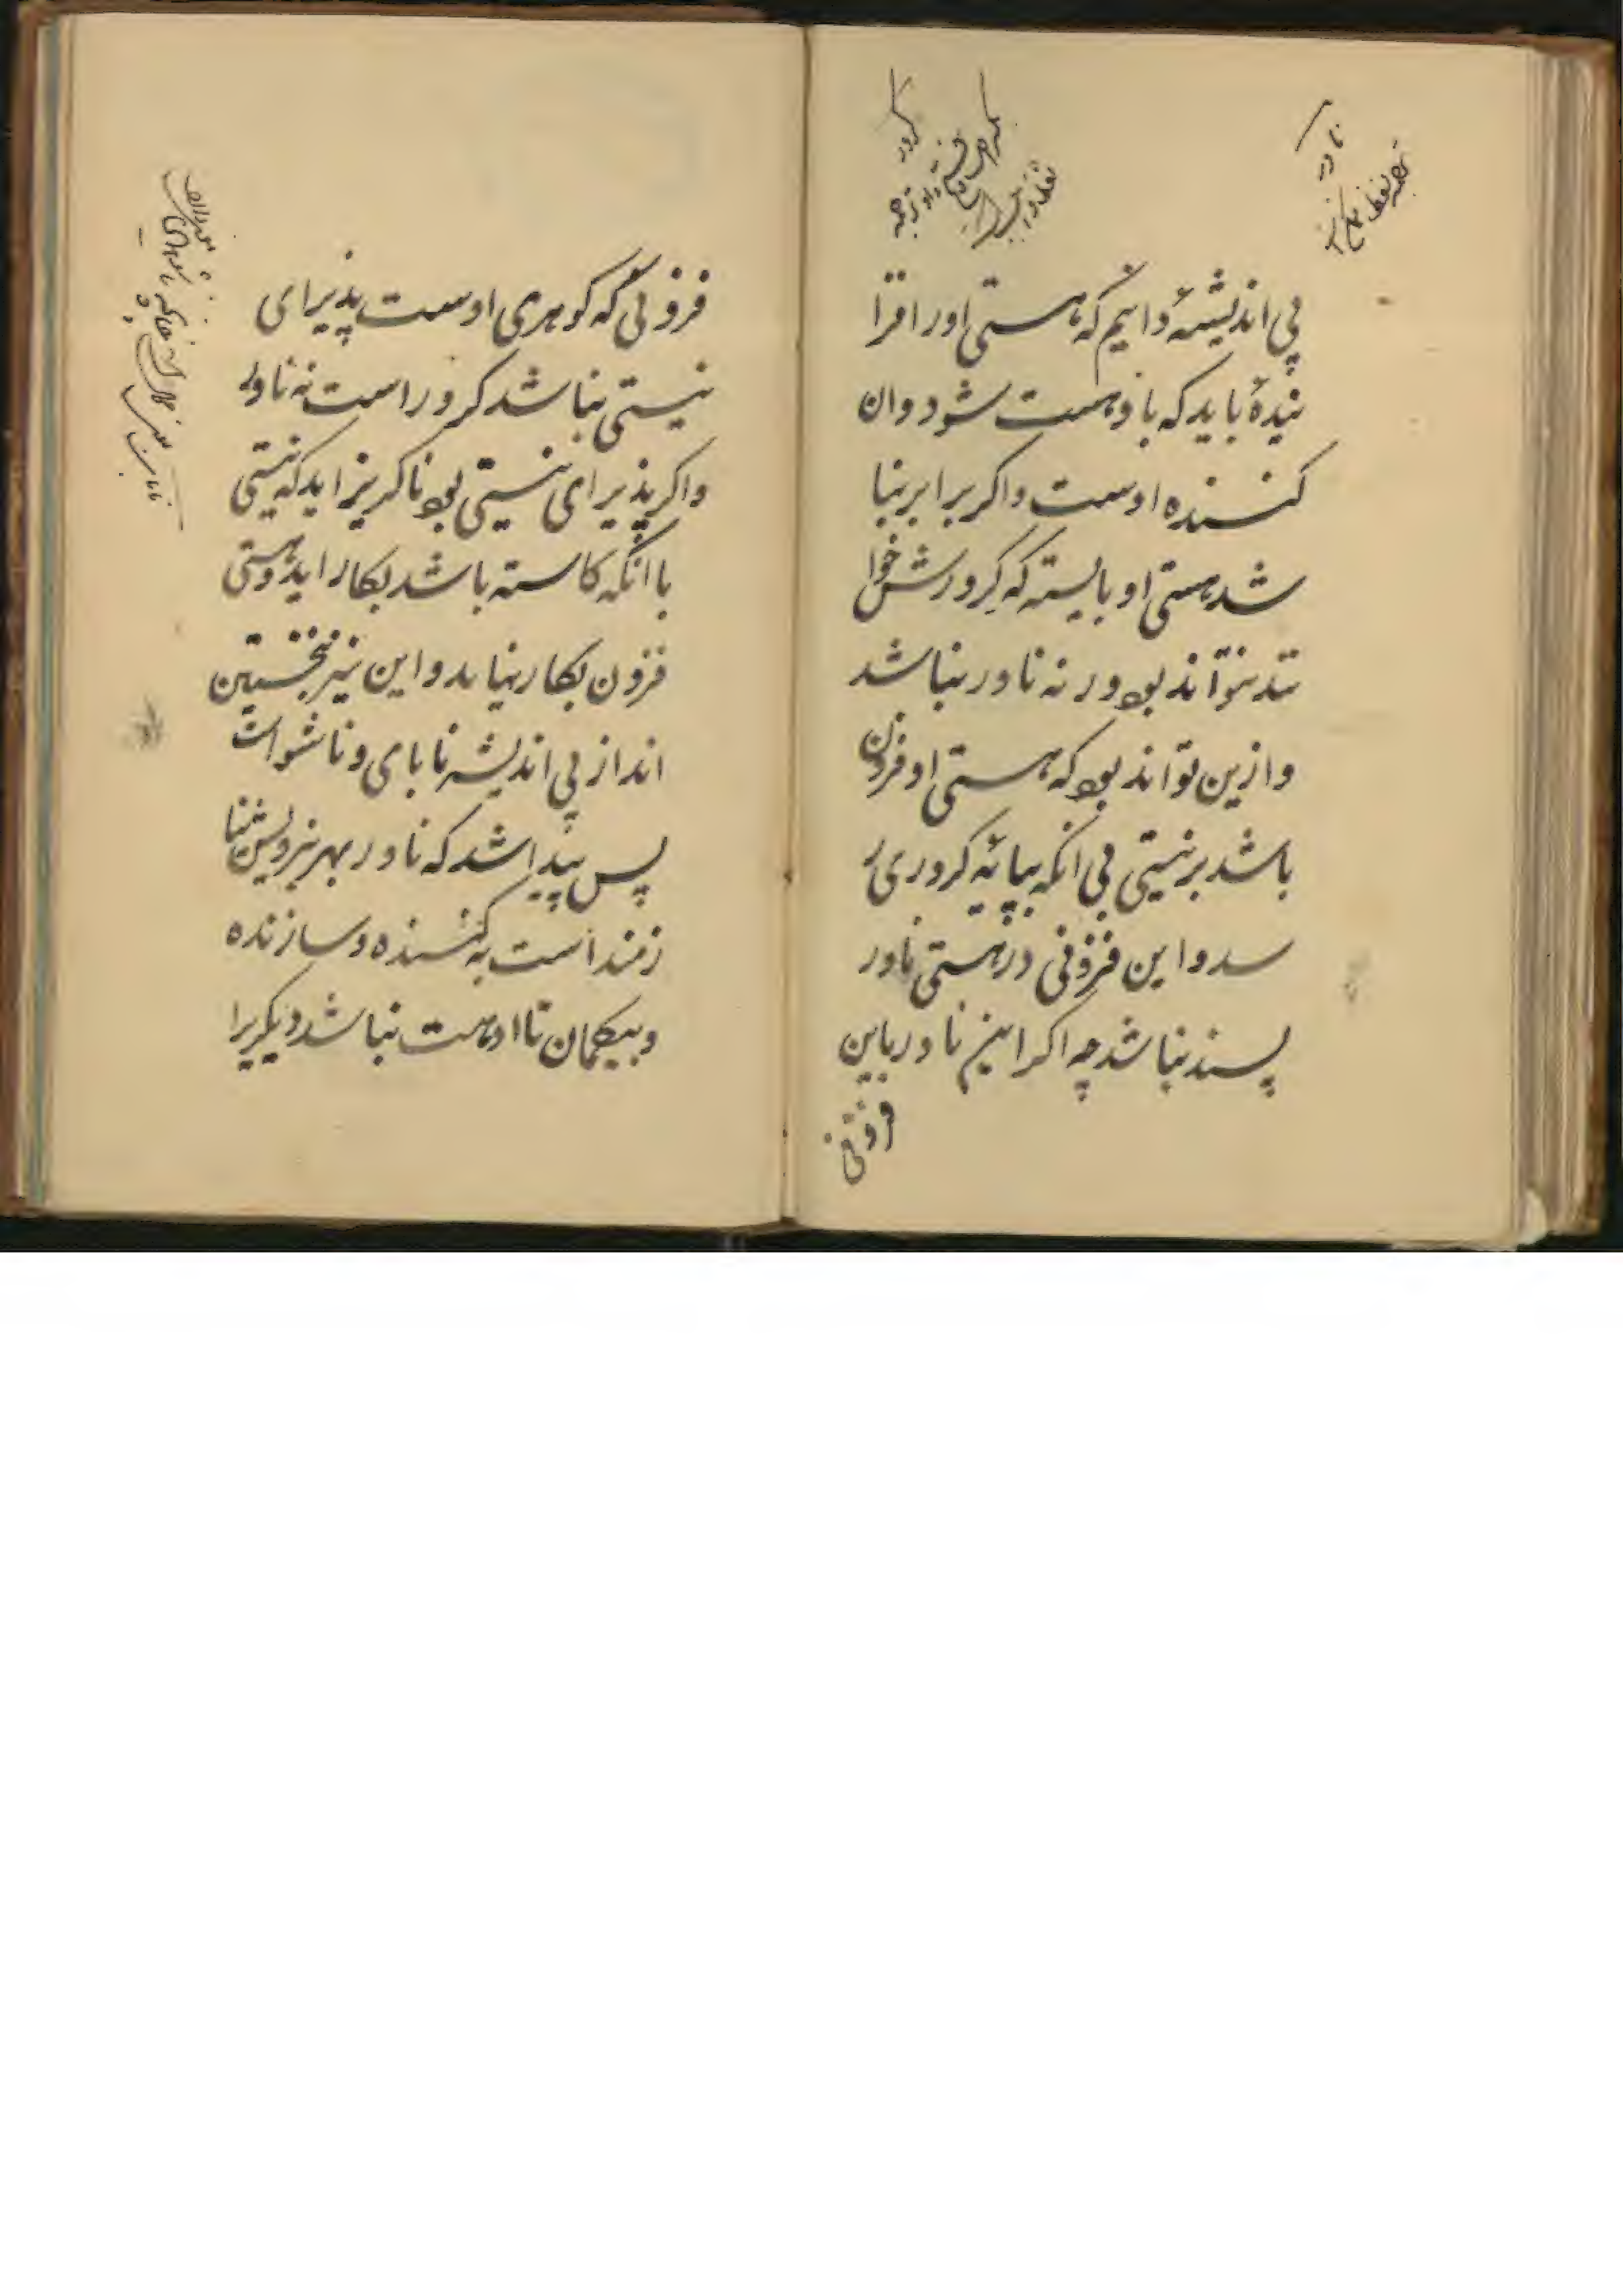 پی اندیشهٔ دانیم که هستی اور افزا
ینیدهٔ باید که با و هست شود و ان
کنسنده اوست و اکر برابر نبا
شد هستی او بایسته که کرورش خوا
نند نتواند بود ور نه ناور نباشد
و ازین تواند بود که هستی او فزون
باشد بر نیستی بی انکه بپایهٔ کروری ر
سد و این فزونی در هستی ناور
پسند نباشد چه اکر این ناور باین
فزونی
فزونی که کوهری اوست پذیرای
نیستی نباشد کرور است نه ناور
واکر پذیرای نیستی بود ناکریز اید که نیستی
با انکه کاسته باشد بکار اید و هستی
فزون بکار نیاید و این نیز نخستین
انداز پی اندیشه نابای و ناشو است
پس پیدا شد که ناور بهر نیرو یش نیا
زمند است به کنسنده و سازنده
و بیکمان تا او هست نباشد دیکریرا